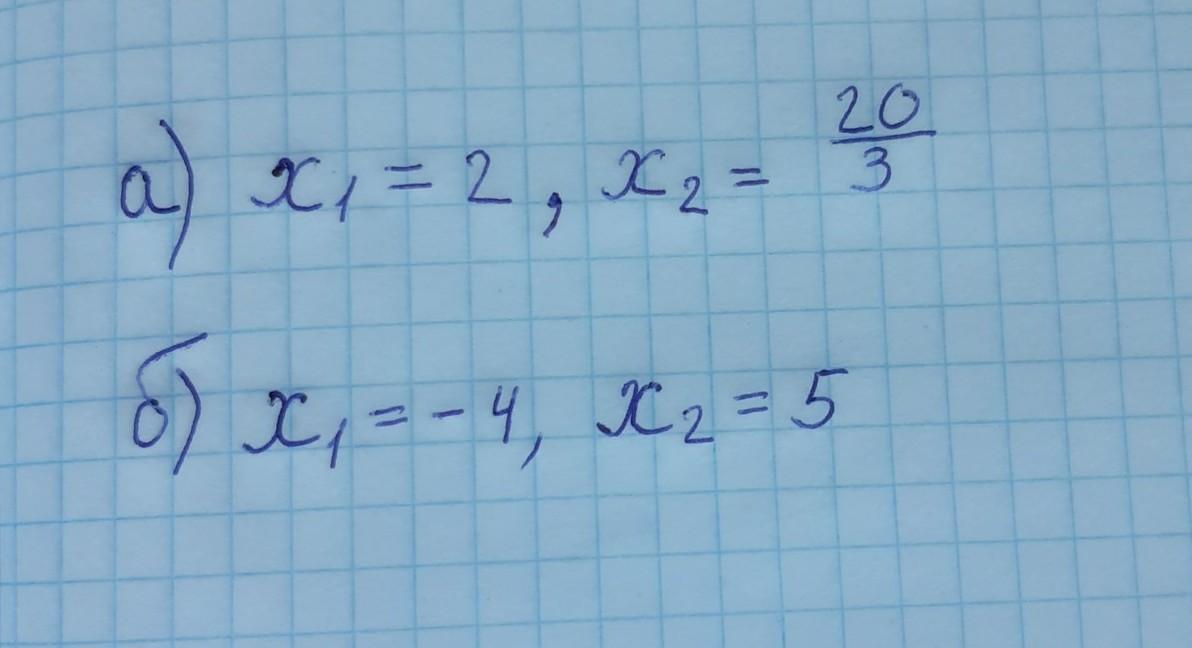 а) x₁ = 2, x₂ = 20/3
б) x₁ = -4, x₂ = 5